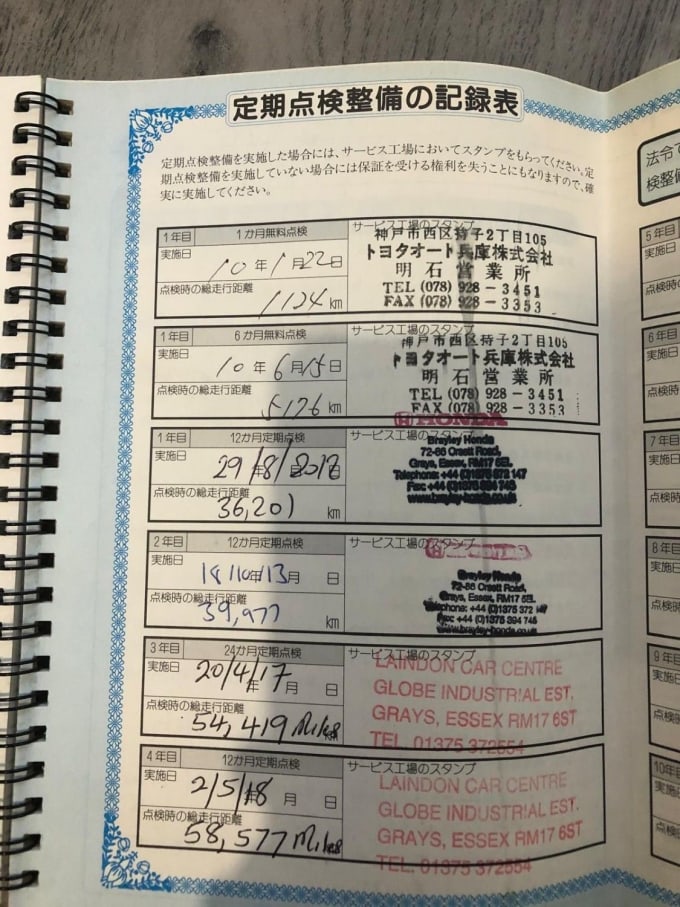 定期点検整備の記録表
定期点検整備を実施した場合には、サービス工場においてスタンプをもらってください。定
期点検整備を実施していない場合には保証を受ける権利を失うことにもなりますので、確
実に実施してください。
1年目 1か月無料点検 サービス工場のスタンプ
実施日 10年1月22日
点検時の総走行距離
1124 km
神戸市西区持子2丁目105
トヨタオート兵庫株式会社
明石営業所
TEL (078) 928-3451
FAX (078) 928-3353
1年目 6か月無料点検 サービス工場のスタンプ
実施日 10年6月15日
点検時の総走行距離
5126 km
神戸市西区持子2丁目105
トヨタオート兵庫株式会社
明石営業所
TEL (078) 928-3451
FAX (078) 928-3353
1年目 12か月定期点検 サービス工場のスタンプ
実施日 29/8/2012 年 日
点検時の総走行距離
36,201 km
HONDA
Brayley Honda
72-86 Orsett Road,
Grays, Essex, RM17 5EL
Telephone: +44 (0)1375 372 147
Fax: +44 (0)1375 394 745
www.brayley-honda.co.uk
2年目 12か月定期点検 サービス工場のスタンプ
実施日 18/10/13 年 月 日
点検時の総走行距離
39,977 km
HONDA
Brayley Honda
72-86 Orsett Road,
Grays, Essex, RM17 5EL
Telephone: +44 (0)1375 372 147
Fax: +44 (0)1375 394 745
www.brayley-honda.co.uk
3年目 24か月定期点検 サービス工場のスタンプ
実施日 20/4/17 年 月 日
点検時の総走行距離
54,419 Miles km
LAINDON CAR CENTRE
GLOBE INDUSTRIAL EST.
GRAYS, ESSEX RM17 6ST
TEL. 01375 372554
4年目 12か月定期点検 サービス工場のスタンプ
実施日 2/5/18 年 月 日
点検時の総走行距離
58,577 Miles
LAINDON CAR CENTRE
GLOBE INDUSTRIAL EST.
GRAYS, ESSEX RM17 6ST
TEL. 01375 372554
法令で
検整備
5年目
実施日
点検時の
6年目
実施日
点検時
7年目
実施日
点検時
8年目
実施日
点検時
9年目
実施日
点検時
10年目
実施
点検